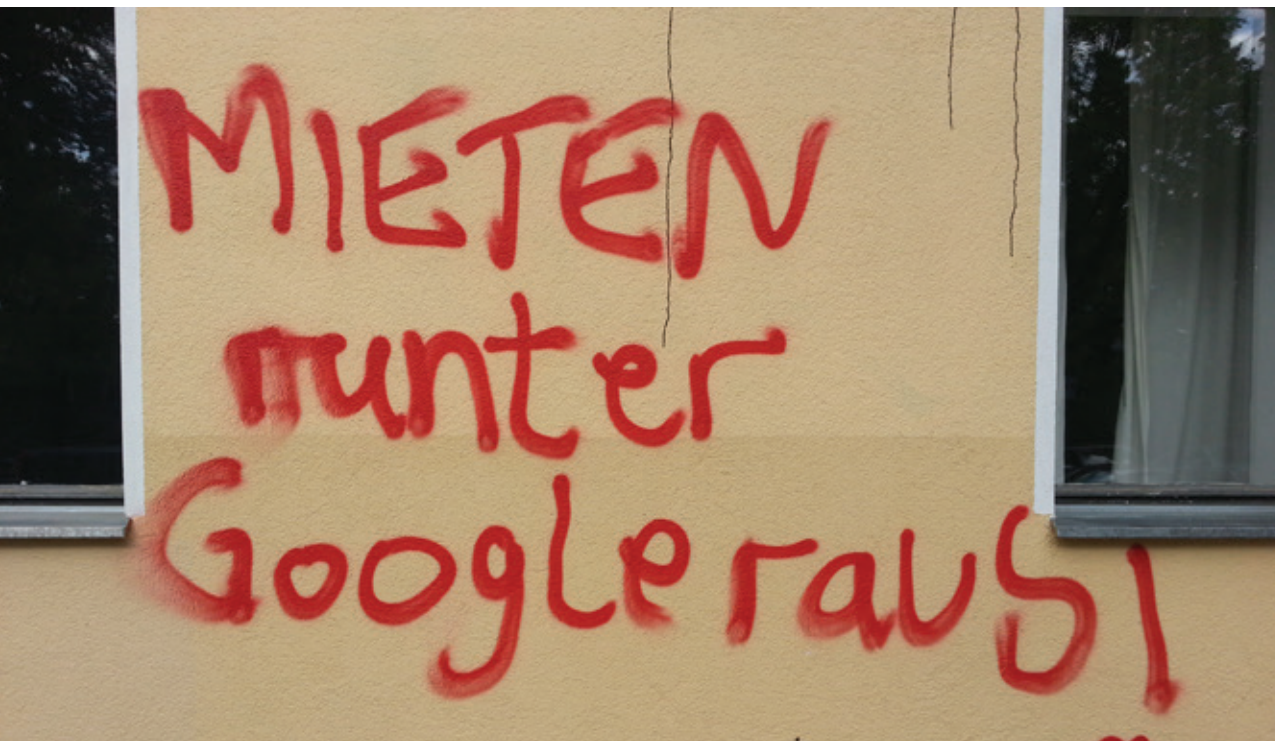 MIETEN
runter
Google raus!